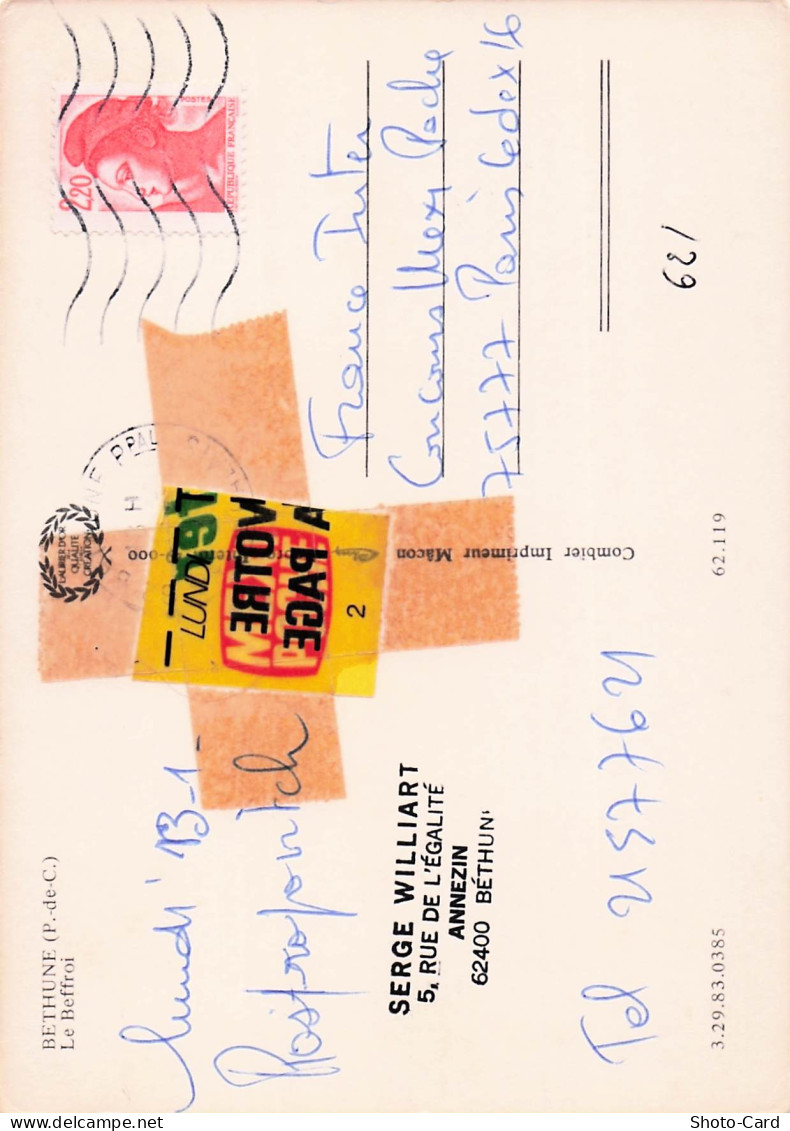 BETHUNE (P.-de-C.)
Le Beffroi
lundi 13-1
Rostropovitch
SERGE WILLIART
5, RUE DE L'ÉGALITÉ
ANNEZIN
62400 BÉTHUN
Tel 21577621
3.29.83.0385
LAURIER D'OR
QUALITÉ
CRÉATION
LUNDI
VOTRE
PAGE
2
Combier Imprimeur Mâcon
62.119
2,20
POSTES
RÉPUBLIQUE FRANÇAISE
France Inter
Concours Mexi Poche
75777 Paris Cedex 16
621
Shoto-Card